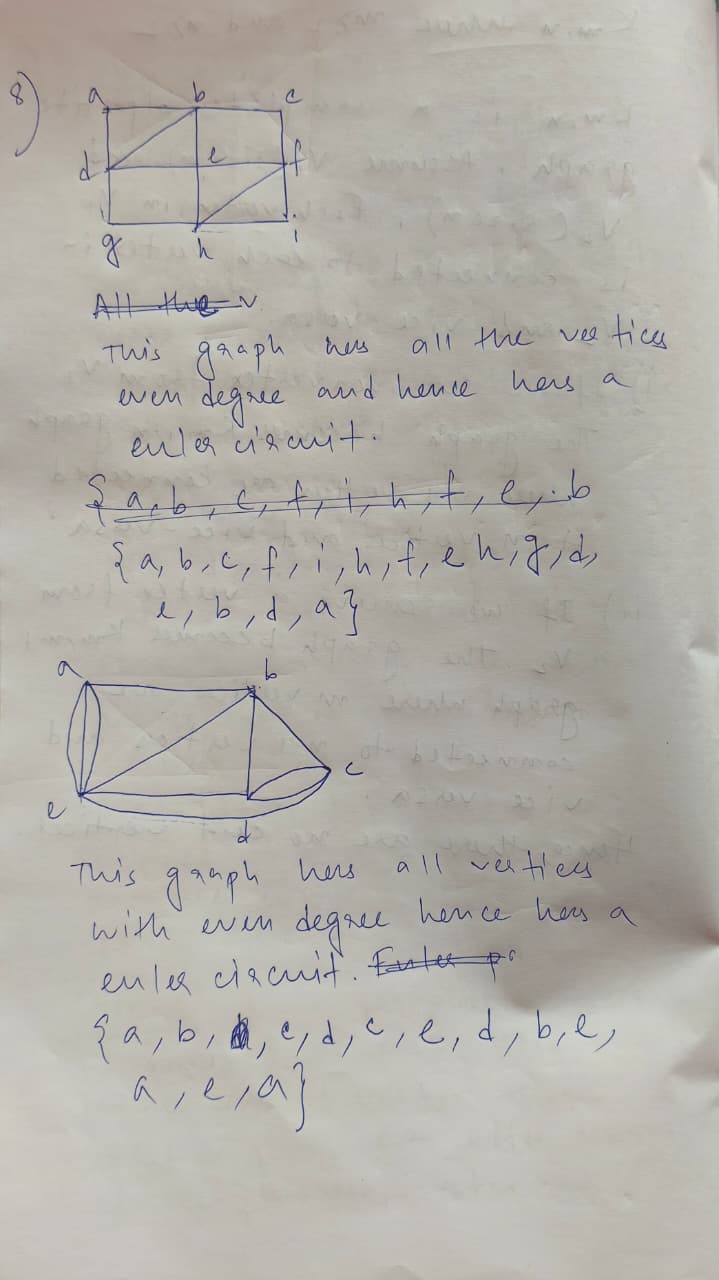 8)
a b c
d e f
g h i
All the v
This graph has all the vertices
even degree and hence has a
euler circuit.
{a, b, c, f, i, h, f, e, b
{a, b, c, f, i, h, f, e h, g, d,
e, b, d, a}
a b
c
e
d
This graph has all vertices
with even degree hence has a
euler circuit. Euler p
{a, b, c, d, c, e, d, b, e,
a, e, a}